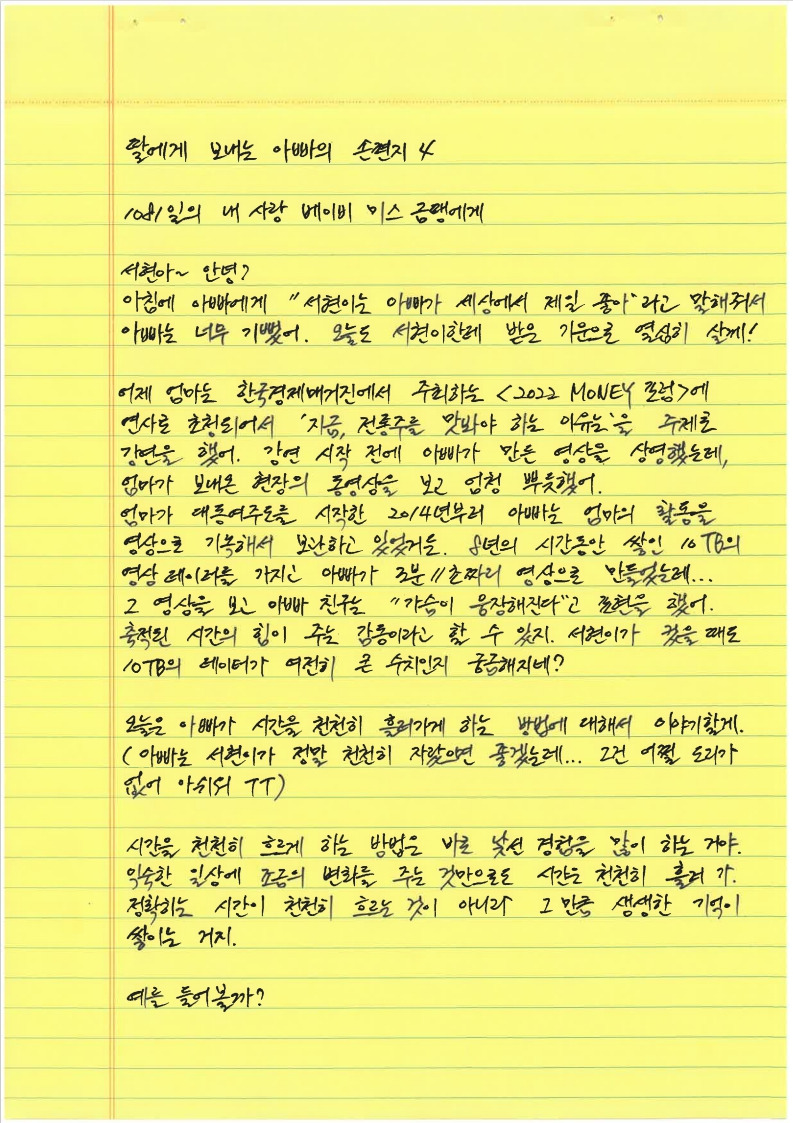 딸에게 보내는 아빠의 손편지 4
1081일의 내 사랑 베이비 미스 금땡에게
서현아~ 안녕?
아침에 아빠에게 "서현이는 아빠가 세상에서 제일 좋아"라고 말해줘서
아빠는 너무 기뻤어. 오늘도 서현이한테 받은 기운으로 열심히 살게!
어제 엄마는 한국경제매거진에서 주최하는 <2022 MONEY 포럼>에
연사로 초청되어서 '지금, 전통주를 맛봐야 하는 이유는'을 주제로
강연을 했어. 강연 시작 전에 아빠가 만든 영상을 상영했는데,
엄마가 보내온 현장의 동영상을 보고 엄청 뿌듯했어.
엄마가 대동여주도를 시작한 2014년부터 아빠는 엄마의 활동을
영상으로 기록해서 보관하고 있었거든. 8년의 시간동안 쌓인 10TB의
영상 데이터를 가지고 아빠가 2분 11초짜리 영상으로 만들었는데...
그 영상을 보고 아빠 친구는 "가슴이 웅장해진다"고 표현을 했어.
축적된 시간의 힘이 주는 감동이라고 할 수 있지. 서현이가 컸을 때도
10TB의 데이터가 여전히 큰 수치인지 궁금해지네?
오늘은 아빠가 시간을 천천히 흘러가게 하는 방법에 대해서 이야기할게.
(아빠는 서현이가 정말 천천히 자랐으면 좋겠는데... 그건 어쩔 도리가
없어 아쉬워 TT)
시간을 천천히 흐르게 하는 방법은 바로 낯선 경험을 많이 하는 거야.
익숙한 일상에 조금의 변화를 주는 것만으로도 시간은 천천히 흘러 가.
정확히는 시간이 천천히 흐르는 것이 아니라 그 만큼 생생한 기억이
쌓이는 거지.
예를 들어볼까?